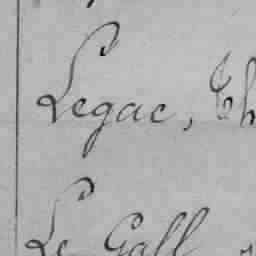 Legac, Th
Le Gall